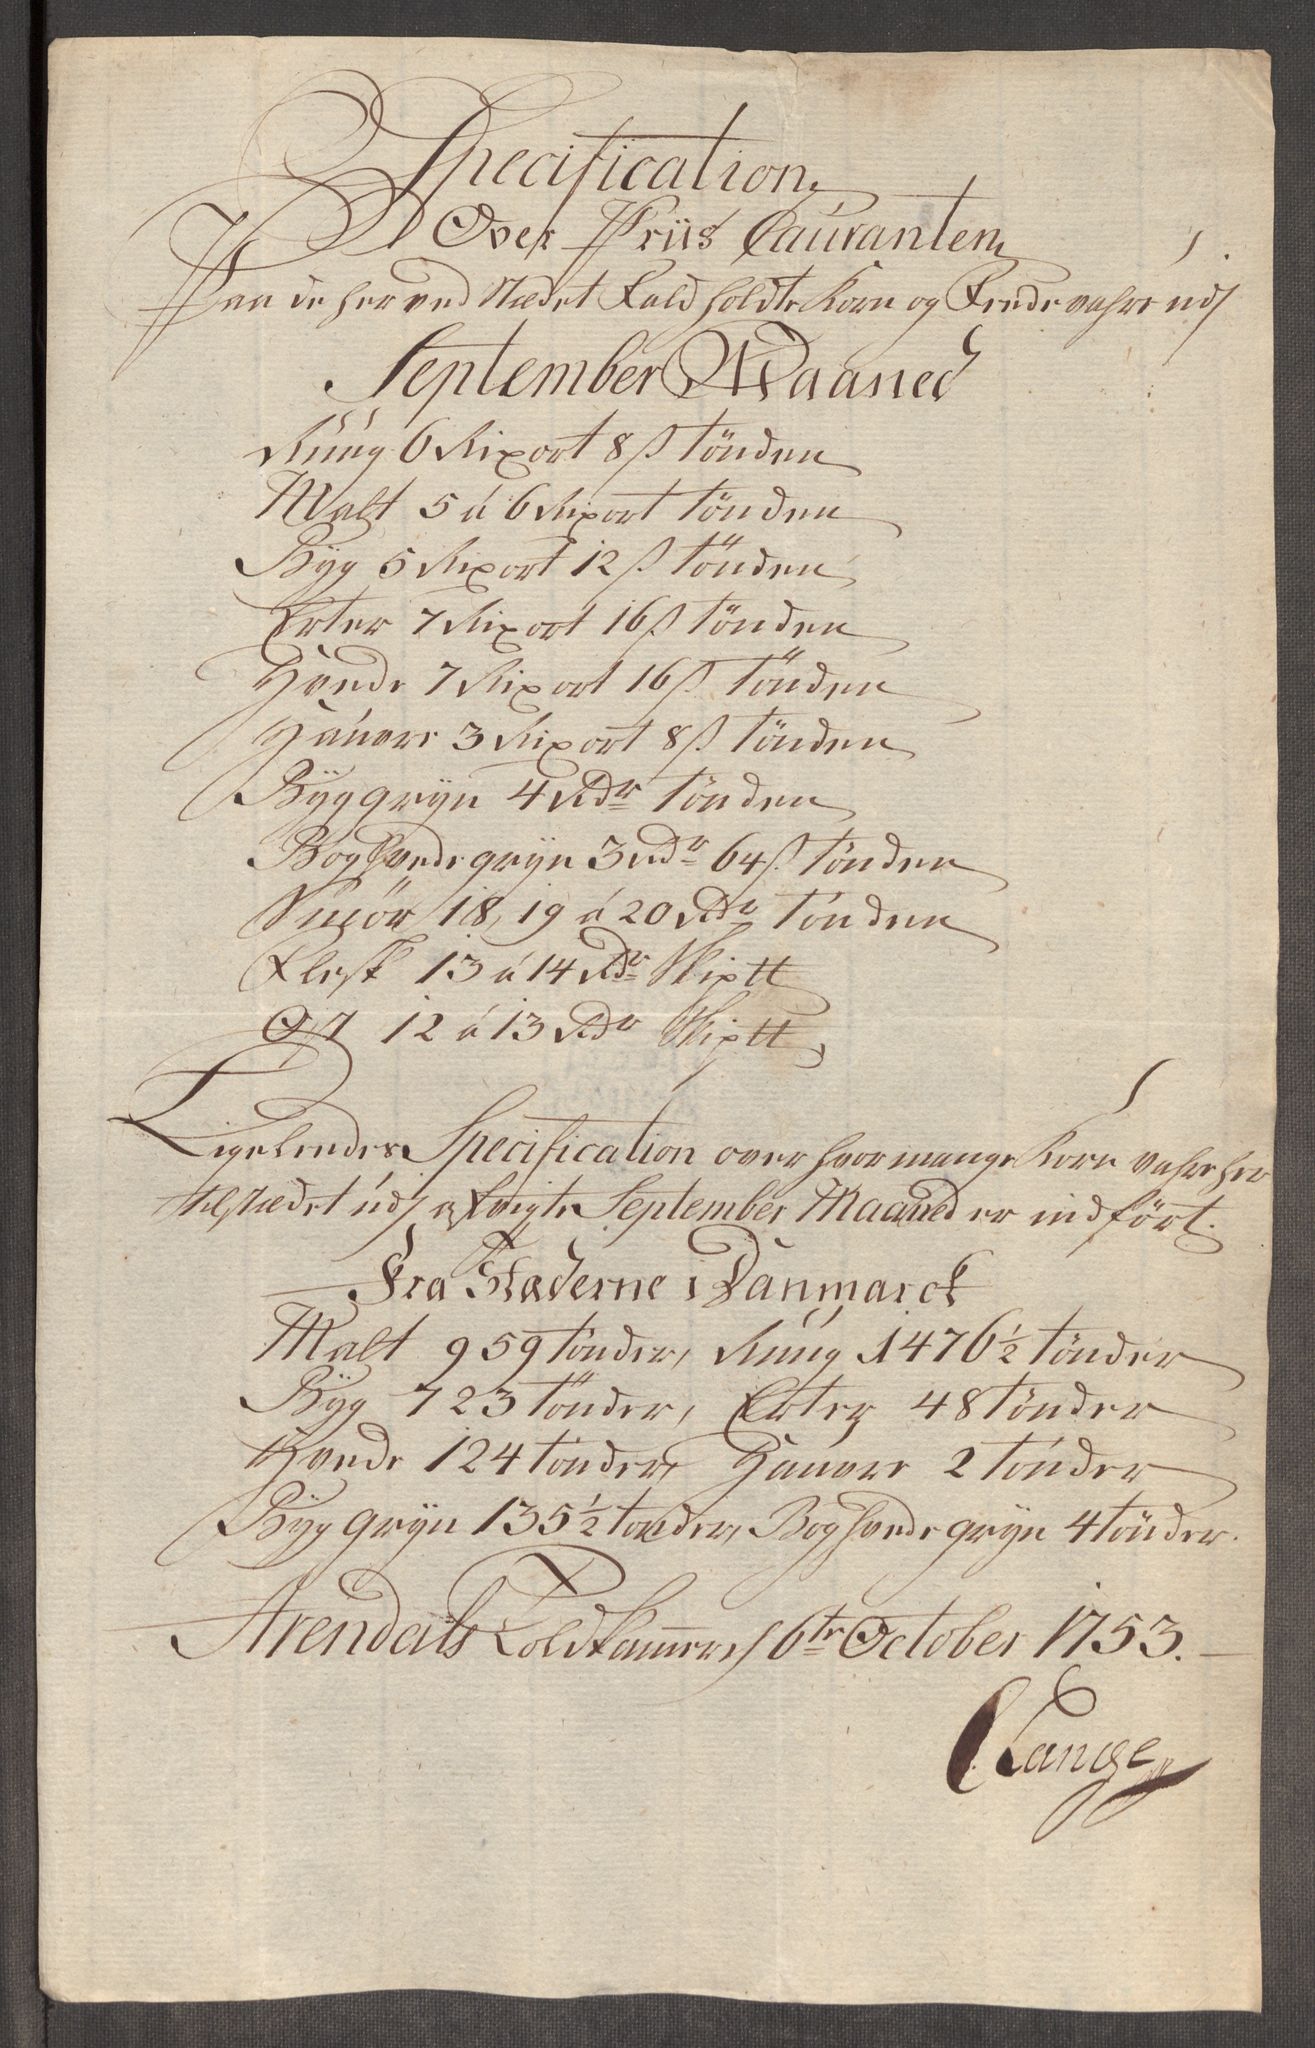 Specification
Over Priis Couranten
Paa de her ved Stædet Fald holdte Korn og Fede vahre udj
September Maaned
Rúúg 6 Rixort 8 ß tönden
Malt 5 á 6 Rixort tönden
Bÿg 5 Rixort 12 ß tönden
Erter 7 Rixort 16 ß tönden
Hvede 7 Rixort 16 ß tönden
Haúore 3 Rixort 8 ß tönden
Bÿggrÿn 4 Rdr tönden
Boghvedegrÿn 3 Rdr 64 ß tönden
Smör 18, 19 á 20 Rdr tönden
Flesk 13 á 14 Rdr Skiptt
Ost 12 á 13 Rdr Skiptt
Ligeleedes Specification over hvor mange Korn vahre her
til stædet údj afvigte September Maaned er indfört.
Fra Stæderne i Danmarck
Malt 959 tönder, Rúúg 1476 1/2 tönder
Bÿg 723 tönder, Erter 48 tönder
Hvede 124 tönder, Haúore 2 tönder
Bÿg grÿn 135 1/2 tönder, Boghvede grÿn 4 tönder.
Arendals Toldkammer d 6te October 1753.
Lange